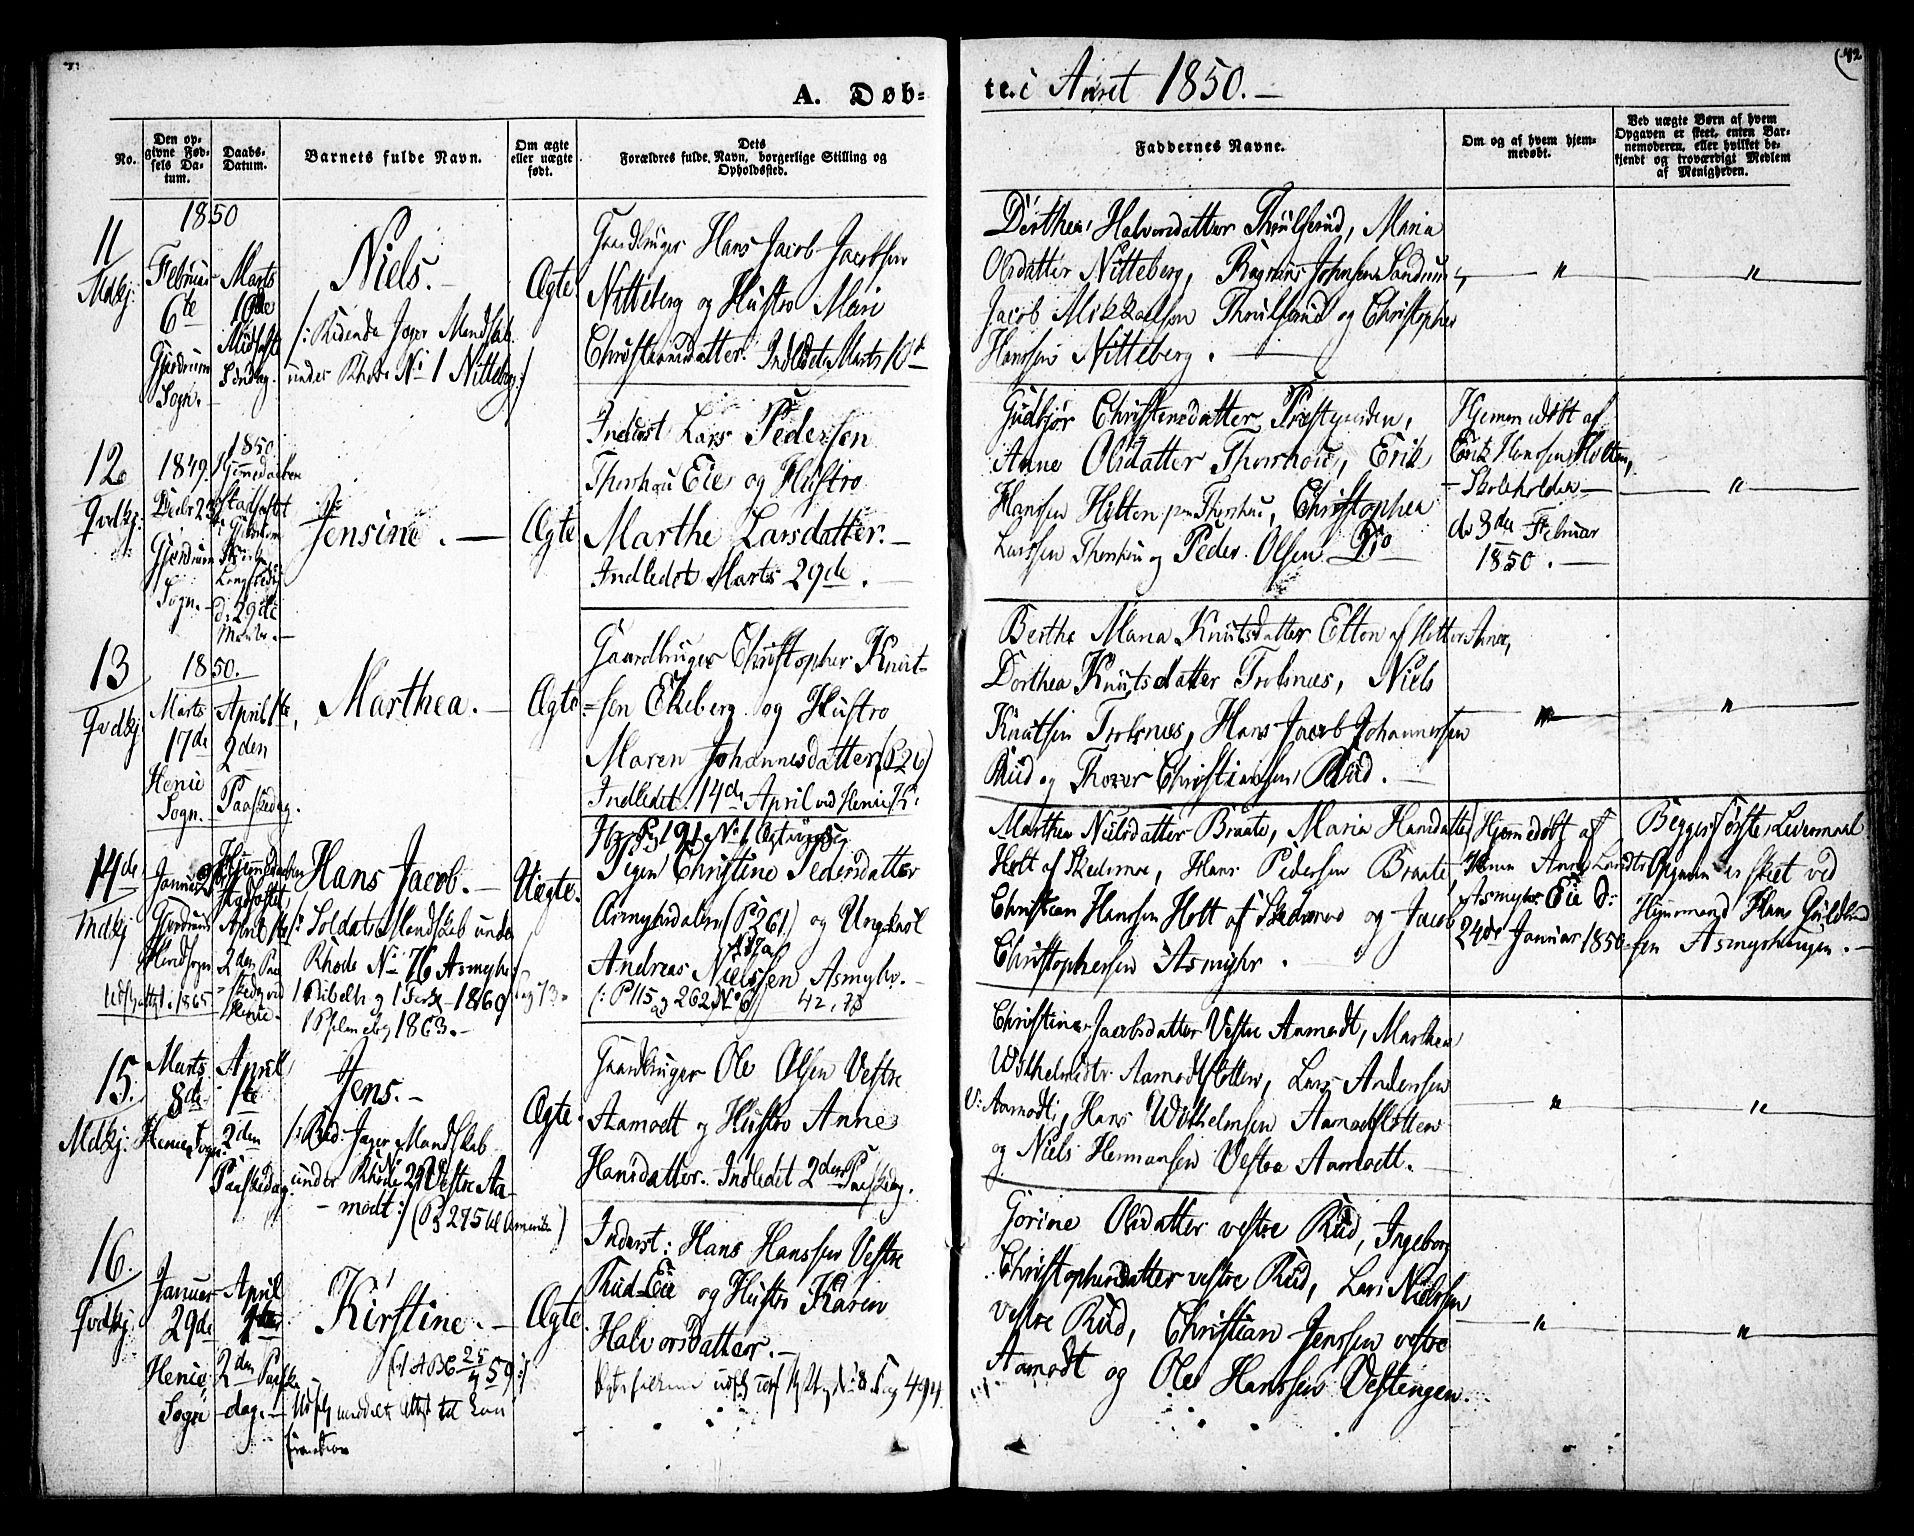 42
A. Døb-
te. i Aaret 1850. —
No.
Den op-
givne Fød-
sels Da-
tum.
Daabs-
Datum.
Barnets fulde Navn.
Om ægte
eller uægte
født.
Dets
Forældres fulde Navn, borgerlige Stilling og
Opholdssted.
Faddernes Navne.
Om og af hvem hjem-
medøbt.
Ved uægte Børn af hvem
Opgaven er skeet, enten Bar-
nemoderen, eller hvilket be-
kjendt og troværdigt Medlem
af Menigheden.
11
Mdkj:
1850
Februar
6te
Gjerdrum
Sogn. -
Marts
10de
Midfaste
Søndag.
Niels. -
/: Ridende Jæger Mandskab
under Rhode No 1 Nitteberg :/
Ægte
Gaardbruger Hans Jacob Jacobsen
Nitteberg og Hustro Mari
Christiansdatter. Indledet Marts 10de
Dorthea Halvorsdatter Thrulserud, Maria
Olsdatter Nitteberg, Johnsen
Jacob Mikkelsen Thrulsrud og Christopher
Hanssen Nitteberg. —
"
"
12
Qvdkj:
1849.
Decbr 23
Gjerdrum
Sogn. -
1850.
Hjemmedaaben
Stadfæstet
i Gjerdrum
Kirke
Langfredag
d. 29de
Marts. -
Jensine. —
Ægte
Inderst Lars Pedersen
Thorshou Eie og Hustro
Marthe Larsdatter. -
Indledet Marts 29de. —
Gudbjør Christensdatter Præstgaarden,
Anne Olsdatter Thorshou, Erik
Hanssen Hilten Thorshou, Christopher
Larssen Thorshou og Peder Olsen Do
Hjemmedøbt af
Erik Hanssen Holten,
- Skoleholder -
d. 3de Februar
1850. —
"
13
Qvdkj.
1850.
Marts
17de
Henie
Sogn.
April 1te,
2den
Paaskedag.
Marthea. —
Ægte
Gaardbruger Christopher Knut-
=sen Ekeberg og Hustro
Maren Johannesdatter (P 26)
Indledet 14de April ved Henie K:
Berthe Maria Knutsdatter Elton af Hitter Annex,
Dorthea Knutsdatter Troksnes, Niels
Knutsen Troksnes, Hans Jacob Johannessen
Rud og Thorer Christiansen Rud. —
"
"
14de
Mdkj
Januar
Gjerdrums
Hovedsogn
Udfl. attest i 1865
Hjemmedaaben
Stadfæstet
April 1te
2den Paa-
skedag ved
Henie. -
Hans Jacob. -
/: Soldat Mandskab under
Rhode No 76 Asmyhr :/
1 Bibelh og 1 Forkl — 1860
1 Psalmebog 1863. -
Uægte.
Pigen Christine Pedersdatter
Asmyhrdalen (P 261) og Ungkarl
Andreas Nielssen Asmyhr. -
(: P 115 og 262 No 6) 42, 73
Marthea Nielsdatter Braate, Maria Hansdatter
Holt af Skedsmo, Hans Pedersen Braate,
Christian Hanssen Holt af Skedsmo og Jacob
Christophersen Asmyhr.
Hjemmedøbt af
Kone Anne
Asmyhr Eie d:
24de Januar 1850
Begges første Leiermaal
Opgaven er skeet ved
Huusmand Hans Guldbrand-
sen Asmyrhaugen. -
15.
Mdkj.
Marts
8de
Henie Sogn.
April
1te
2den
Paaskedag.
Jens. -
/: Rid: Jæger Mandskab
under Rhode No 29 Vestre Aa-
- modt :/ (P 275 til Amerika)
Ægte.
Gaardbruger Ole Olsen Vestre
Aamodt og Hustro Anne
Hansdatter. Indledet 2den Paaskedag.
Christine Jacobsdatter Vestre Aamodt, Marthea
Wilhelmsdtr. Aamodtslotten, Lars Andersen
V: Aamodt, Hans Wilhelmsen Aamodtslotten
og Niels Hermansen Vestre Aamodt. —
"
"
16.
Qvdkj.
Januar
29de
Henie
Sogn
April
1te
2den Paaske-
dag. -
Kirstine. —
(: A B C 25/4 59 :)
Udfl. meddelt Attest til
Ægte
Inderst: Hans Hanssen Vestre
Rud Eie og Hustro Karen
Halvorsdatter. -
Gorine Olsdatter vestre Rud, Ingeborg
Christophersdatter vestre Rud, Lars Nielsen
vestre Rud, Christian Jenssen vestre
Aamodt og Ole Hanssen Vestengen.
"
"